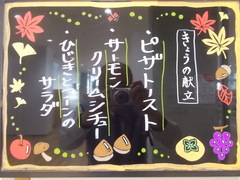 きょうの献立
ピザトースト
サーモン
クリームシチュー
ひじきとコーンの
サラダ